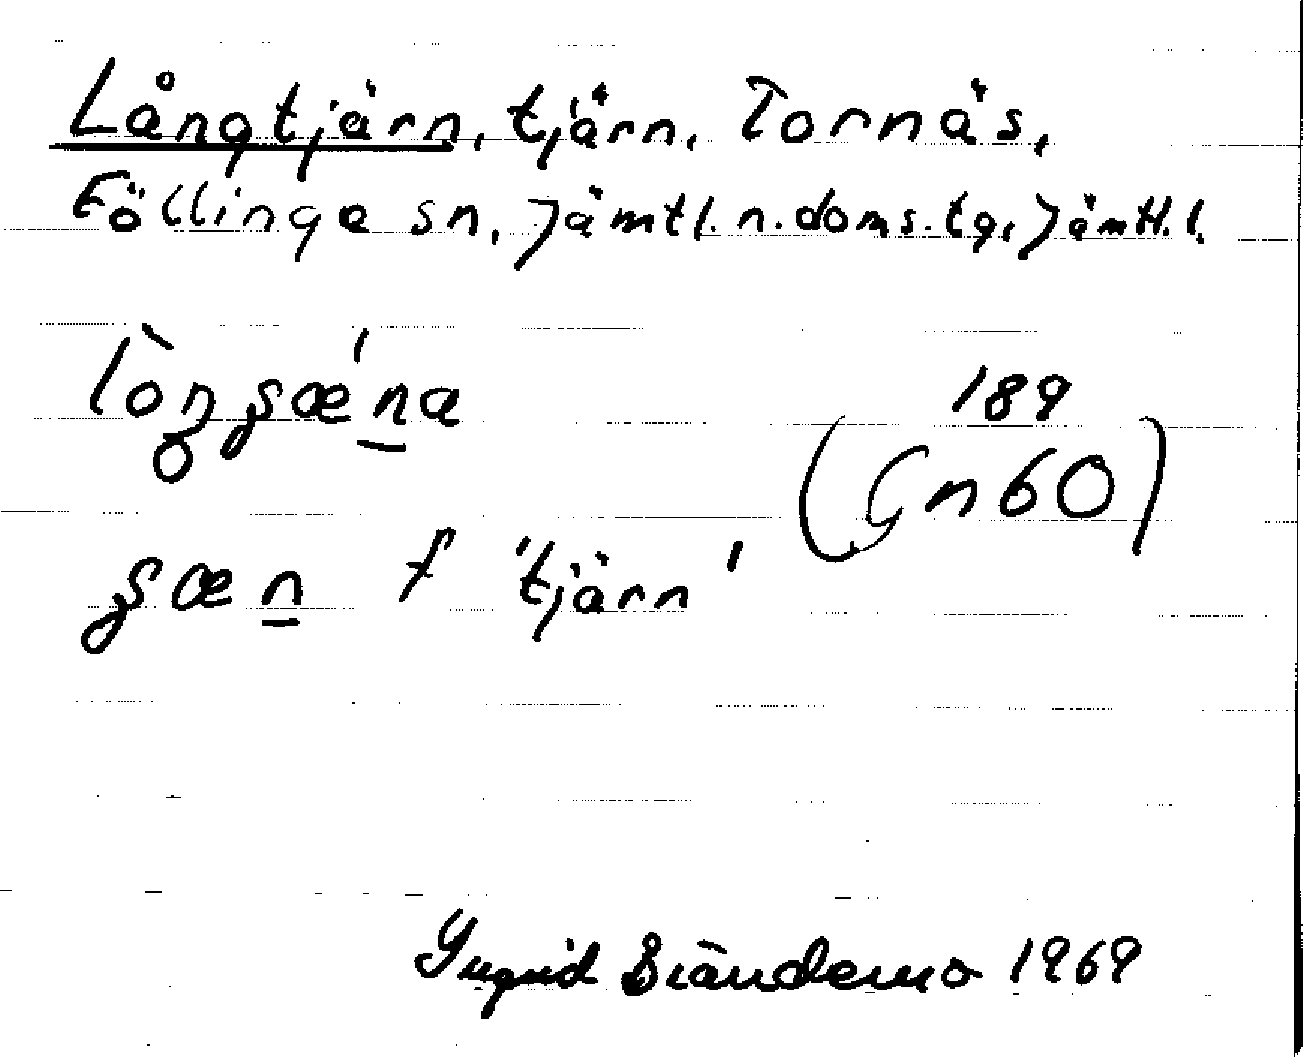 Långtjärn, tjärn, Tornäs,
Föllinge sn, Jämtl. n. doms. tg, Jämtl. l.
189
(Gn60)
f 'tjärn'
Ingrid Brändemo 1969